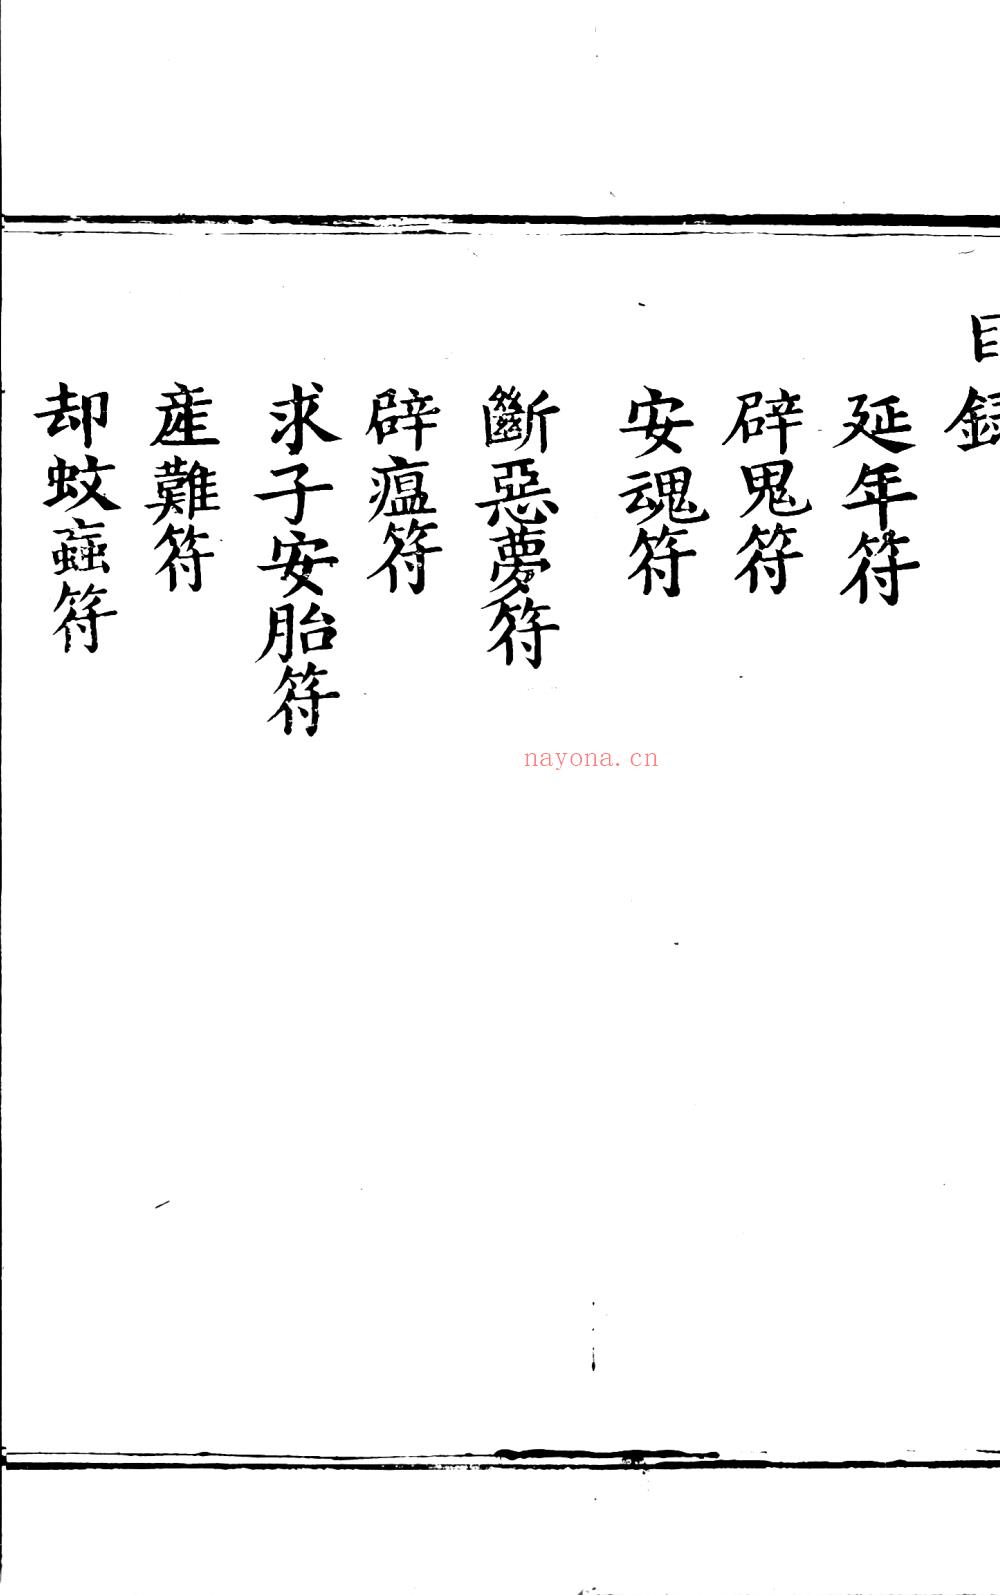 目録
延年符
辟鬼符
安魂符
斷惡夢符
辟瘟符
求子安胎符
産難符
却蚊蝱符
nayona.cn